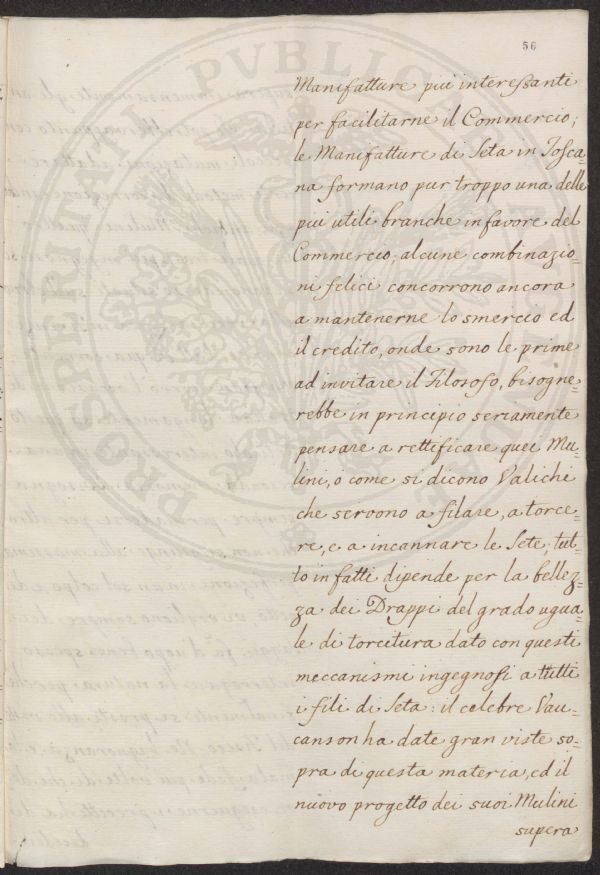 56
Manifatture più interessanti
per facilitarne il Commercio;
le Manifatture di Seta in Tosca=
na formano pur troppo una delle
più utili branche in favore del
Commercio; alcune combinazio=
ni felici concorrono ancora
a mantenerne lo smercio ed
il credito, onde sono le prime
ad invitare il Filosofo, bisogne=
rebbe in principio seriamente
pensare a rettificare quei Mu=
lini, o come si dicono Valichi
che servono a filare, a torce=
re, e a incannare le Sete, tut=
to infatti dipende per la bellez=
za dei Drappi del grado ugua=
le di torcitura dato con questi
meccanismi ingegnosi a tutti
i fili di Seta: il celebre Vau=
canson ha date gran viste so=
pra di questa materia, ed il
nuovo progetto dei suoi Mulini
supera
PROSPERITATI PVBLICAE